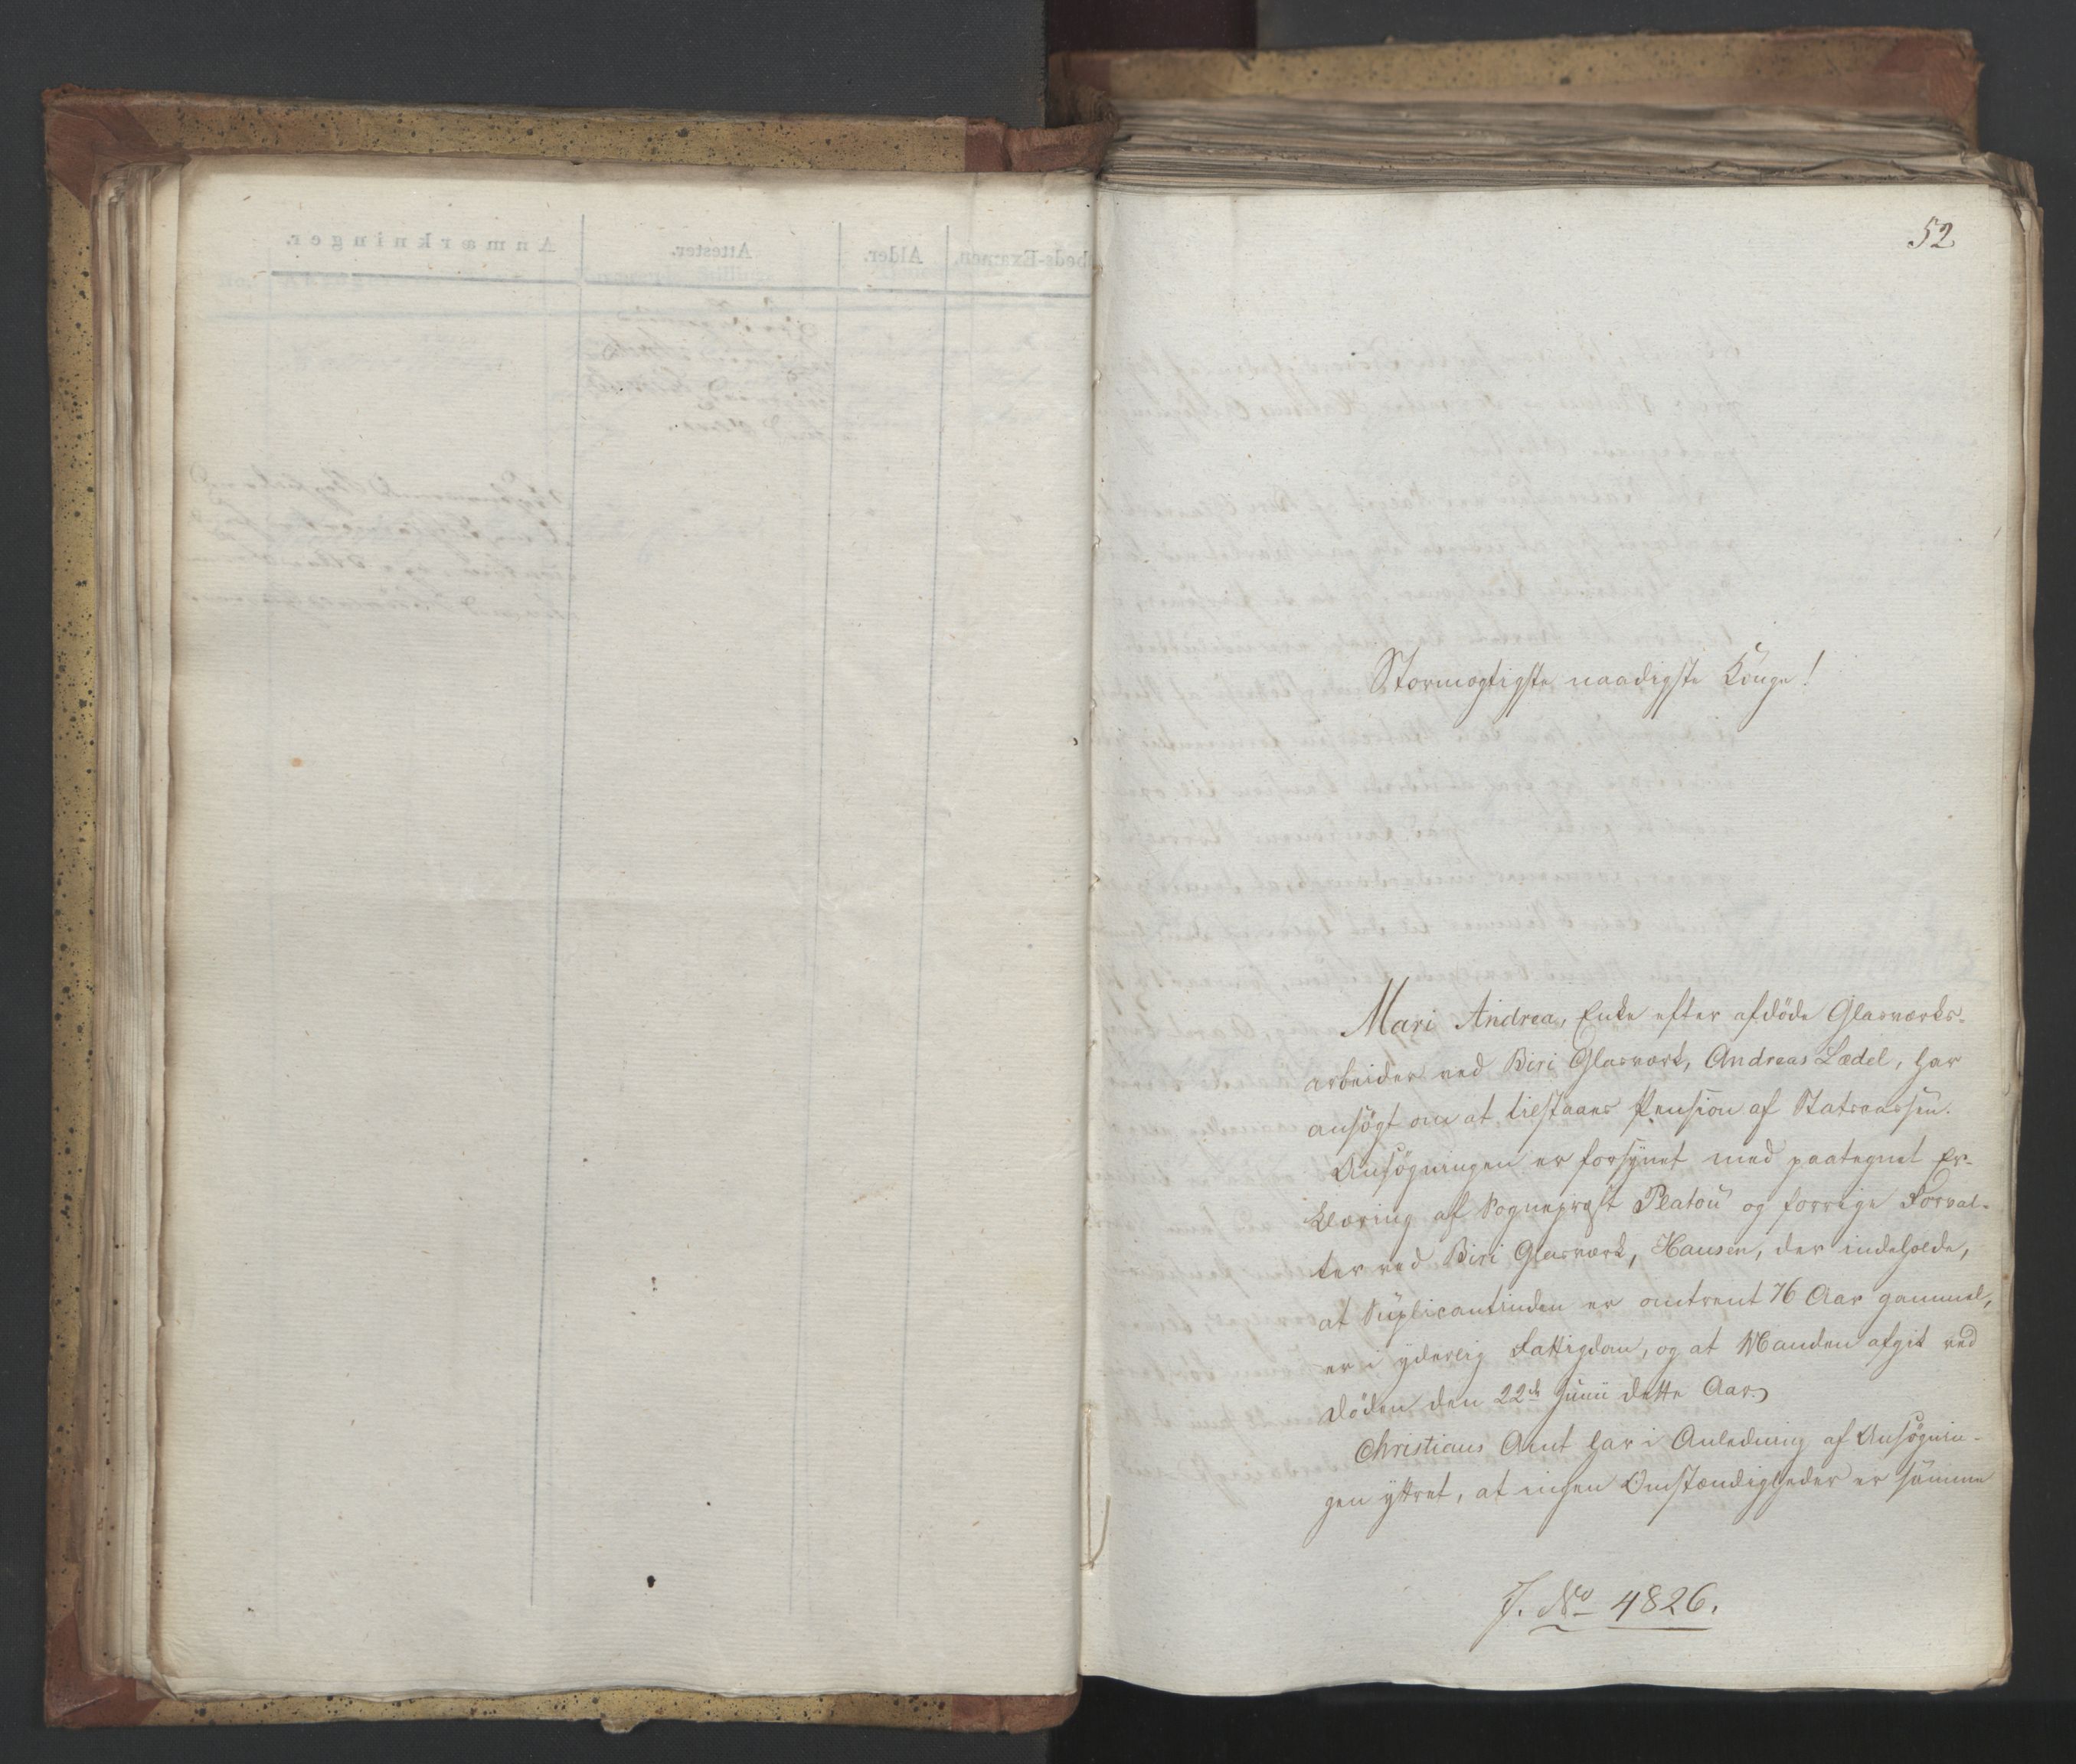 52
Stormægtigste naadigste Konge!
Mari Andrea, Enke efter afdöde Glasværks-
arbeider ved Biri Glasværk, Andreas Lædel, har
ansögt om at tilstaaes Pension af Statscassen.
Ansögningen er forsynet med paategnet Er-
klæring af Sognepræst Platou og forrige Forval-
ter ved Biri Glasværk, Hansen, der indeholde,
at Suplicantinden er omtrent 76 Aar gammel,
er i yderlig Fattigdom, og at Manden afgik ved
Döden den 22de Junii dette Aar.
Christians Amt har i Anledning af Ansögnin-
gen yttret, at ingen Omstændigheder er samme
J. No 4826.
Anmærkninger.
Attester.
Alder.
beds-Examen.